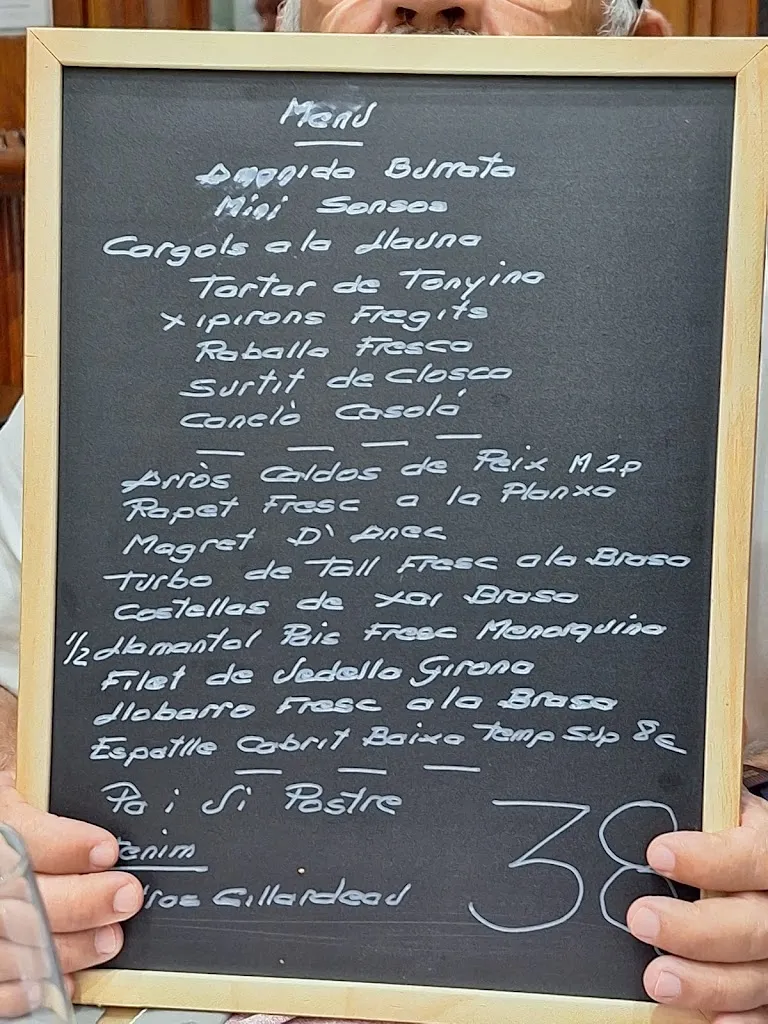 Menú
Amanida Burrata
Mini Sonsos
Cargols a la Llauna
Tartar de Tonyina
Xipirons Fregits
Raballo Fresco
Surtit de Closca
Caneló Casolá
Arròs Caldos de Peix M2p
Rapet Fresc a la Planxa
Magret D'Anec
Turbo de Tall Fresc a la Brasa
Costellas de Xai Brasa
1/2 Llamantol Pais Fresc Menorquina
Filet de Vedella Girona
Llobarro Fresc a la Brasa
Espatlle Cabrit Baixa Temp Sup 8€
Pa i Vi Postre
38
tenim
Gillardeau